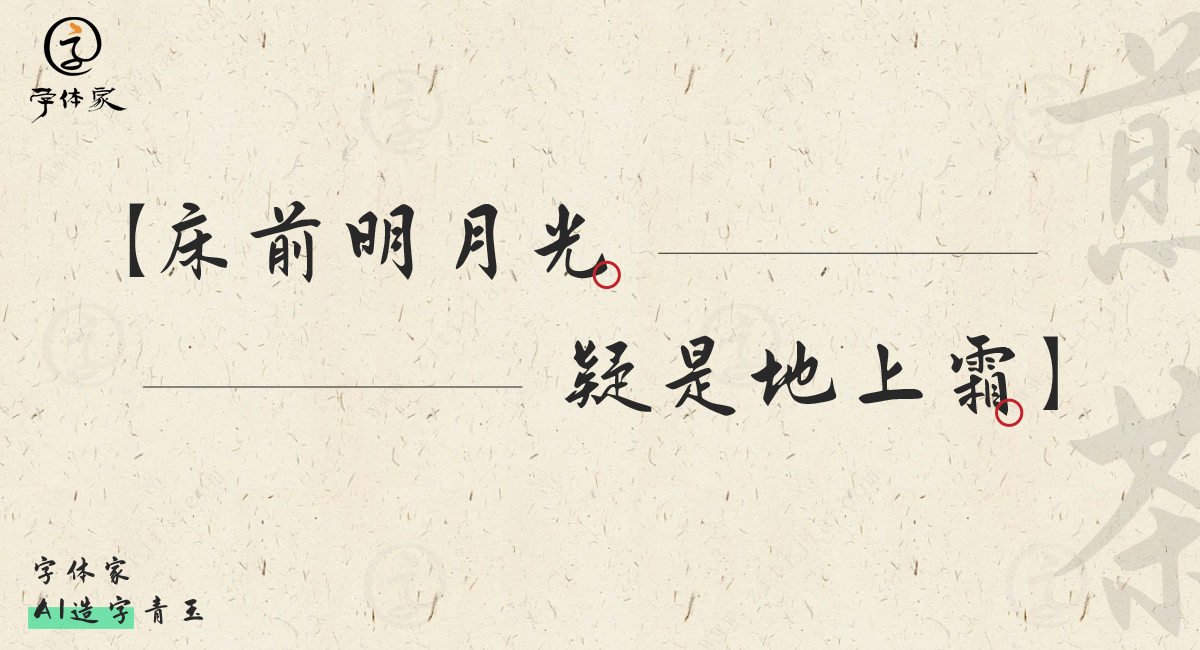 字
字体家
【床前明月光
疑是地上霜】
字体家
AI造字青玉
煎茶